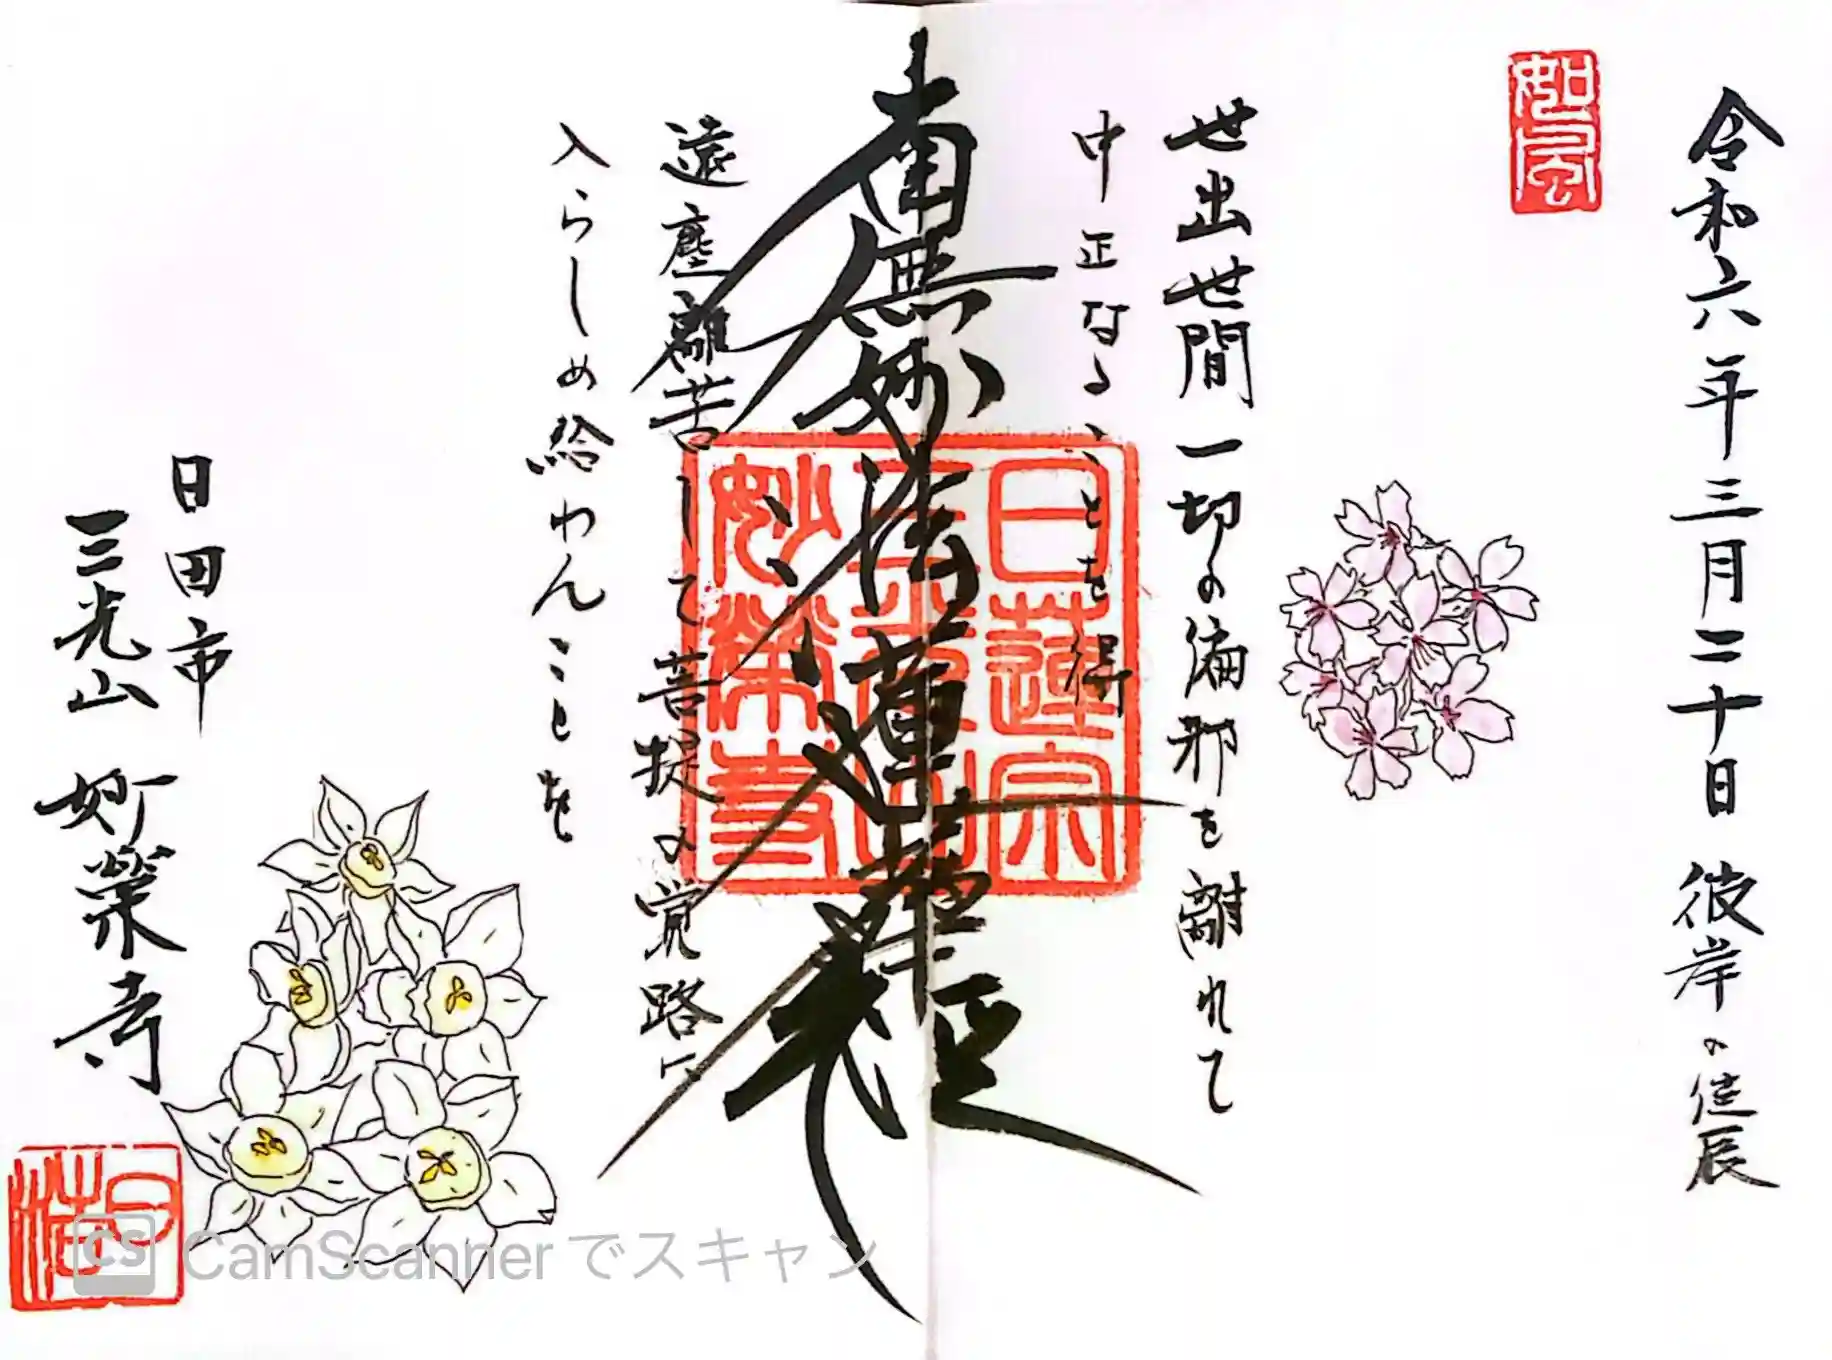 令和六年三月二十日 彼岸の佳辰
如風
世出世間一切の偏邪を離れて
中正なることを得
南無妙法蓮華経
日蓮宗
三光山
妙榮寺
遠塵離苦して菩提の覚路に
入らしめ給わんことを
日田市
三光山 妙榮寺
CS CamScannerでスキャン